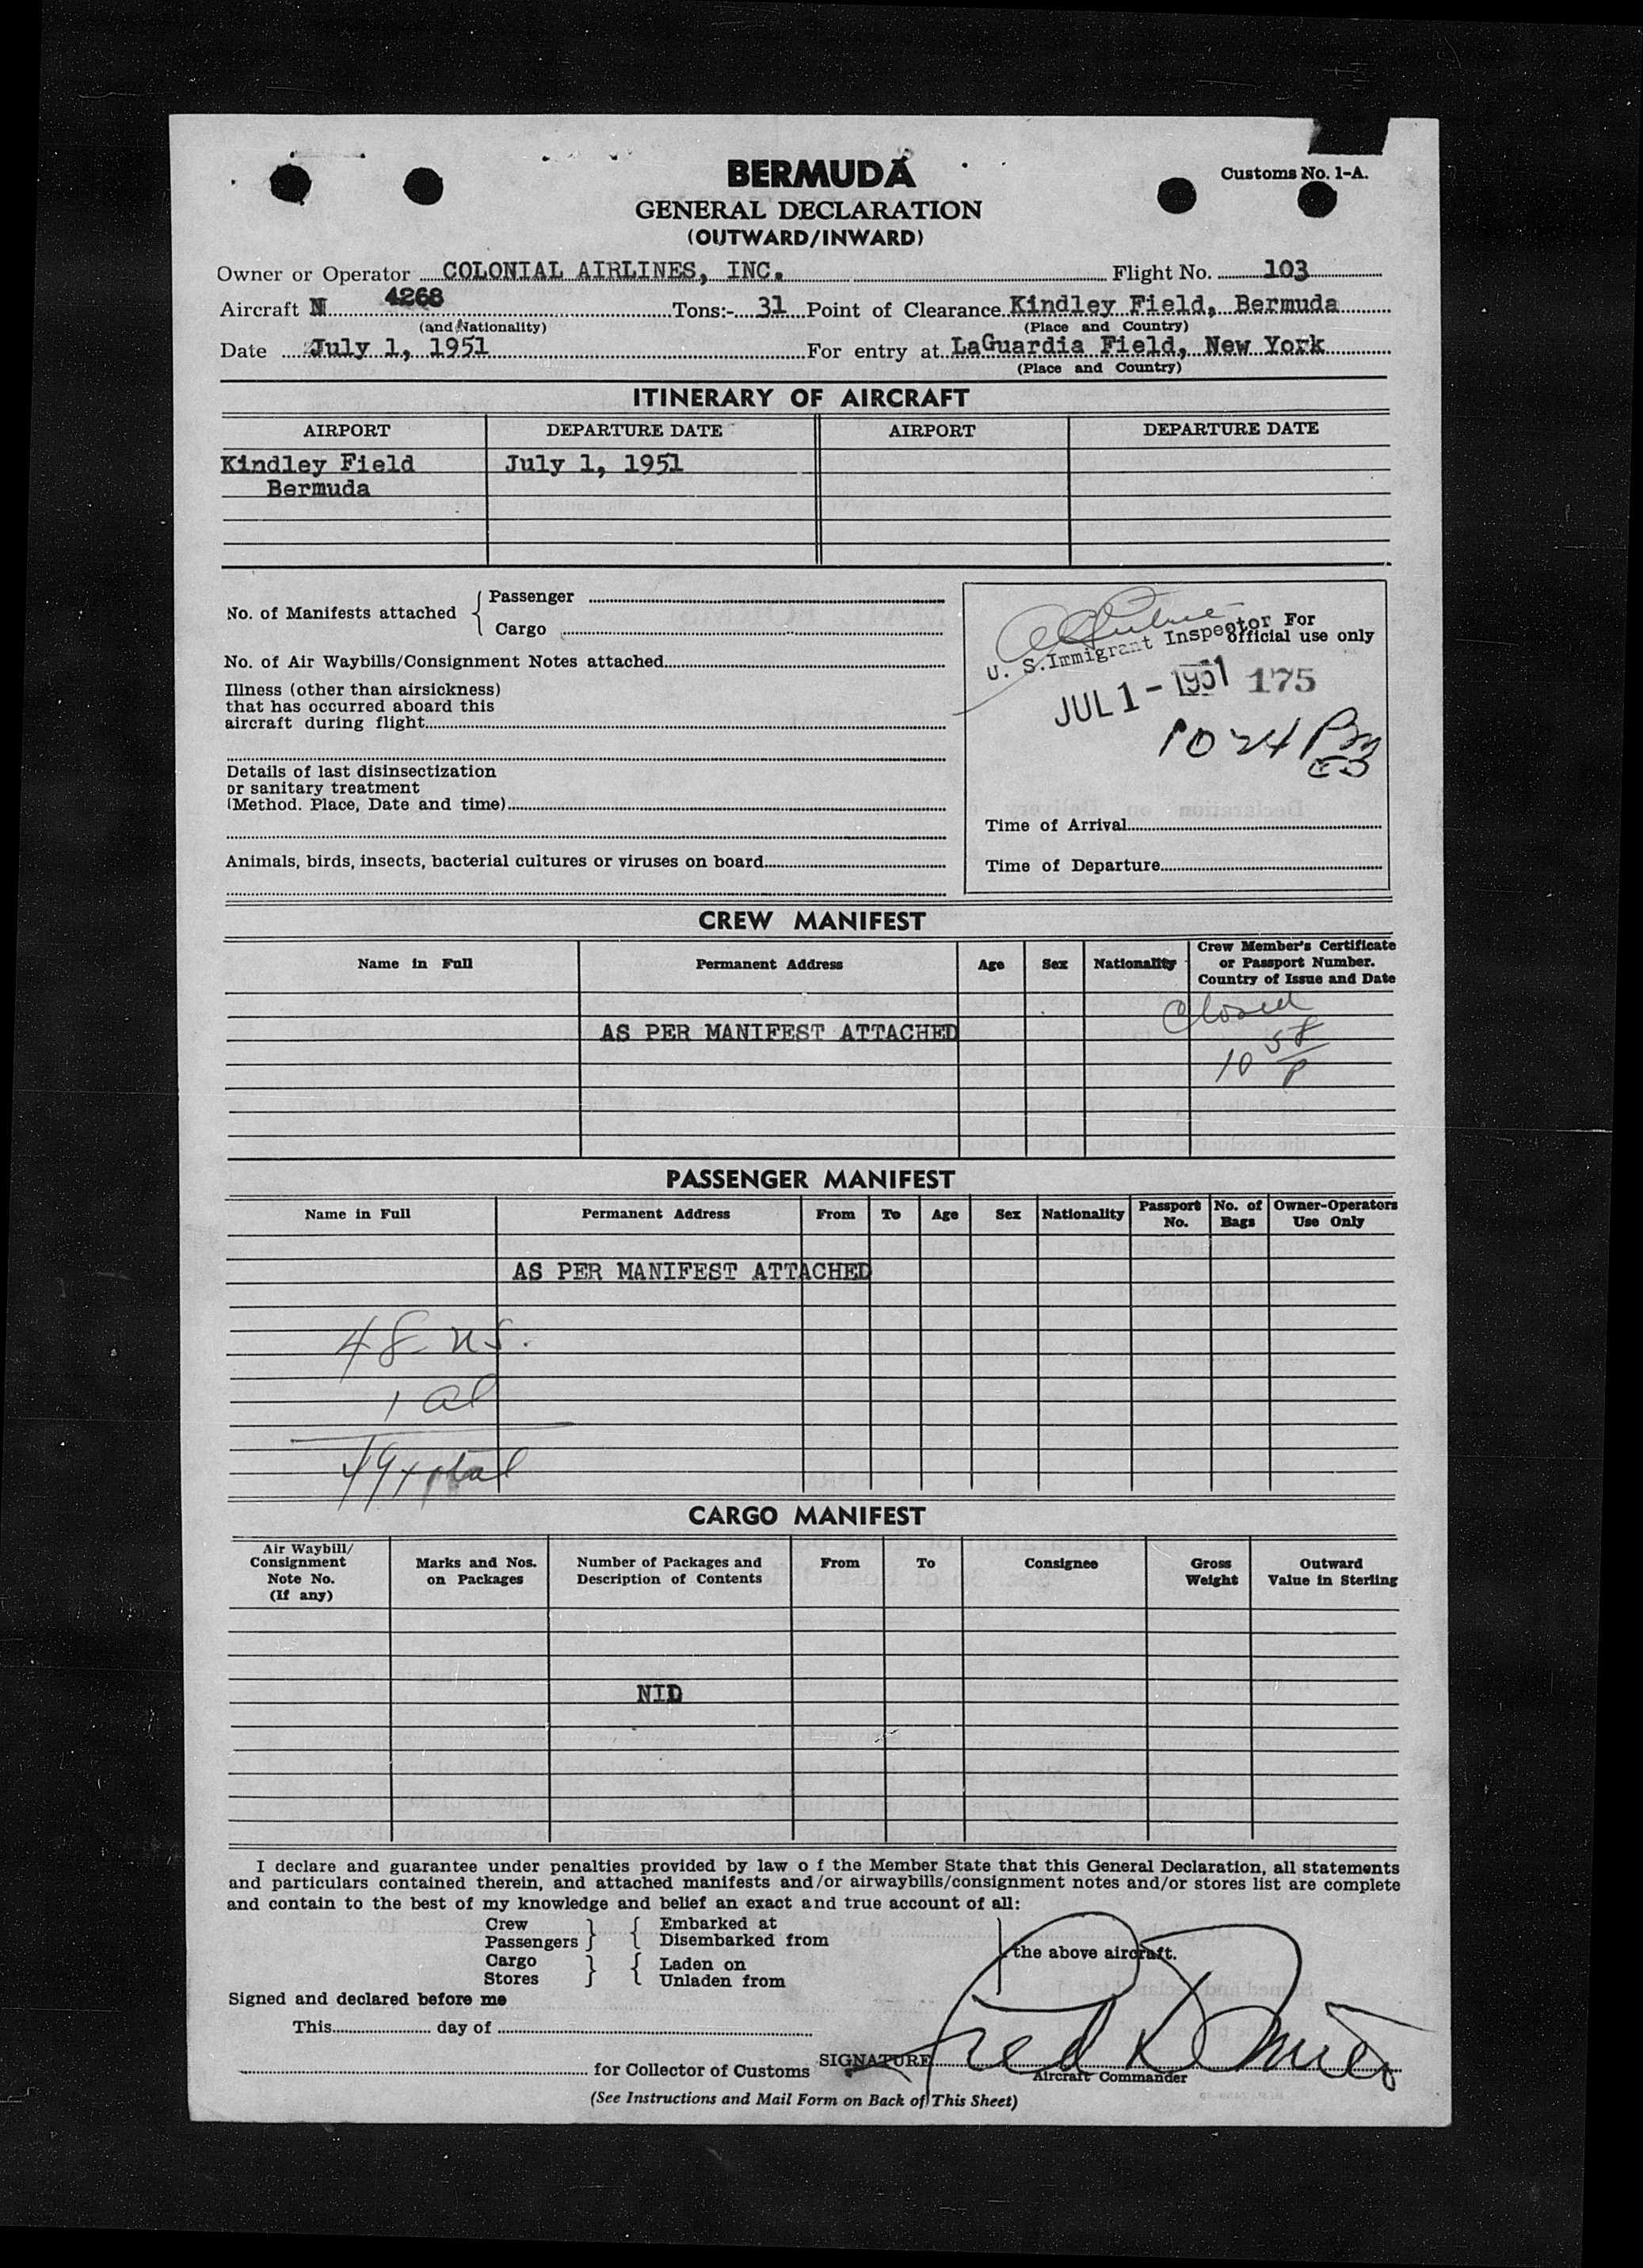 BERMUDA
Customs No. 1-A.
GENERAL DECLARATION
(OUTWARD/INWARD)
Owner or Operator COLONIAL AIRLINES, INC. Flight No. 103
Aircraft N 4268 Tons:- 31 Point of Clearance Kindley Field, Bermuda
(and Nationality) (Place and Country)
Date July 1, 1951 For entry at LaGuardia Field, New York
(Place and Country)
ITINERARY OF AIRCRAFT
AIRPORT DEPARTURE DATE AIRPORT DEPARTURE DATE
Kindley Field July 1, 1951
Bermuda
No. of Manifests attached { Passenger
Cargo
No. of Air Waybills/Consignment Notes attached
Illness (other than airsickness)
that has occurred aboard this
aircraft during flight
Details of last disinsectization
or sanitary treatment
(Method. Place, Date and time)
Animals, birds, insects, bacterial cultures or viruses on board
For
official use only
U. S. Immigrant Inspector
JUL 1 - 1951 175
10 24 Pm
Time of Arrival
Time of Departure
CREW MANIFEST
Name in Full Permanent Address Age Sex Nationality Crew Member's Certificate
or Passport Number.
Country of Issue and Date
Closed
AS PER MANIFEST ATTACHED
10 58
P
PASSENGER MANIFEST
Name in Full Permanent Address From To Age Sex Nationality Passport No. No. of Bags Owner-Operators Use Only
AS PER MANIFEST ATTACHED
48 us.
1 al
49 total
CARGO MANIFEST
Air Waybill/
Consignment
Note No.
(If any)
Marks and Nos.
on Packages
Number of Packages and
Description of Contents
From To Consignee
Gross
Weight
Outward
Value in Sterling
NID
I declare and guarantee under penalties provided by law o f the Member State that this General Declaration, all statements
and particulars contained therein, and attached manifests and/or airwaybills/consignment notes and/or stores list are complete
and contain to the best of my knowledge and belief an exact and true account of all:
Crew } { Embarked at
Passengers } { Disembarked from
the above aircraft.
Cargo } { Laden on
Stores } { Unladen from
Signed and declared before me
This day of
for Collector of Customs SIGNATURE Fred K
Aircraft Commander
(See Instructions and Mail Form on Back of This Sheet)